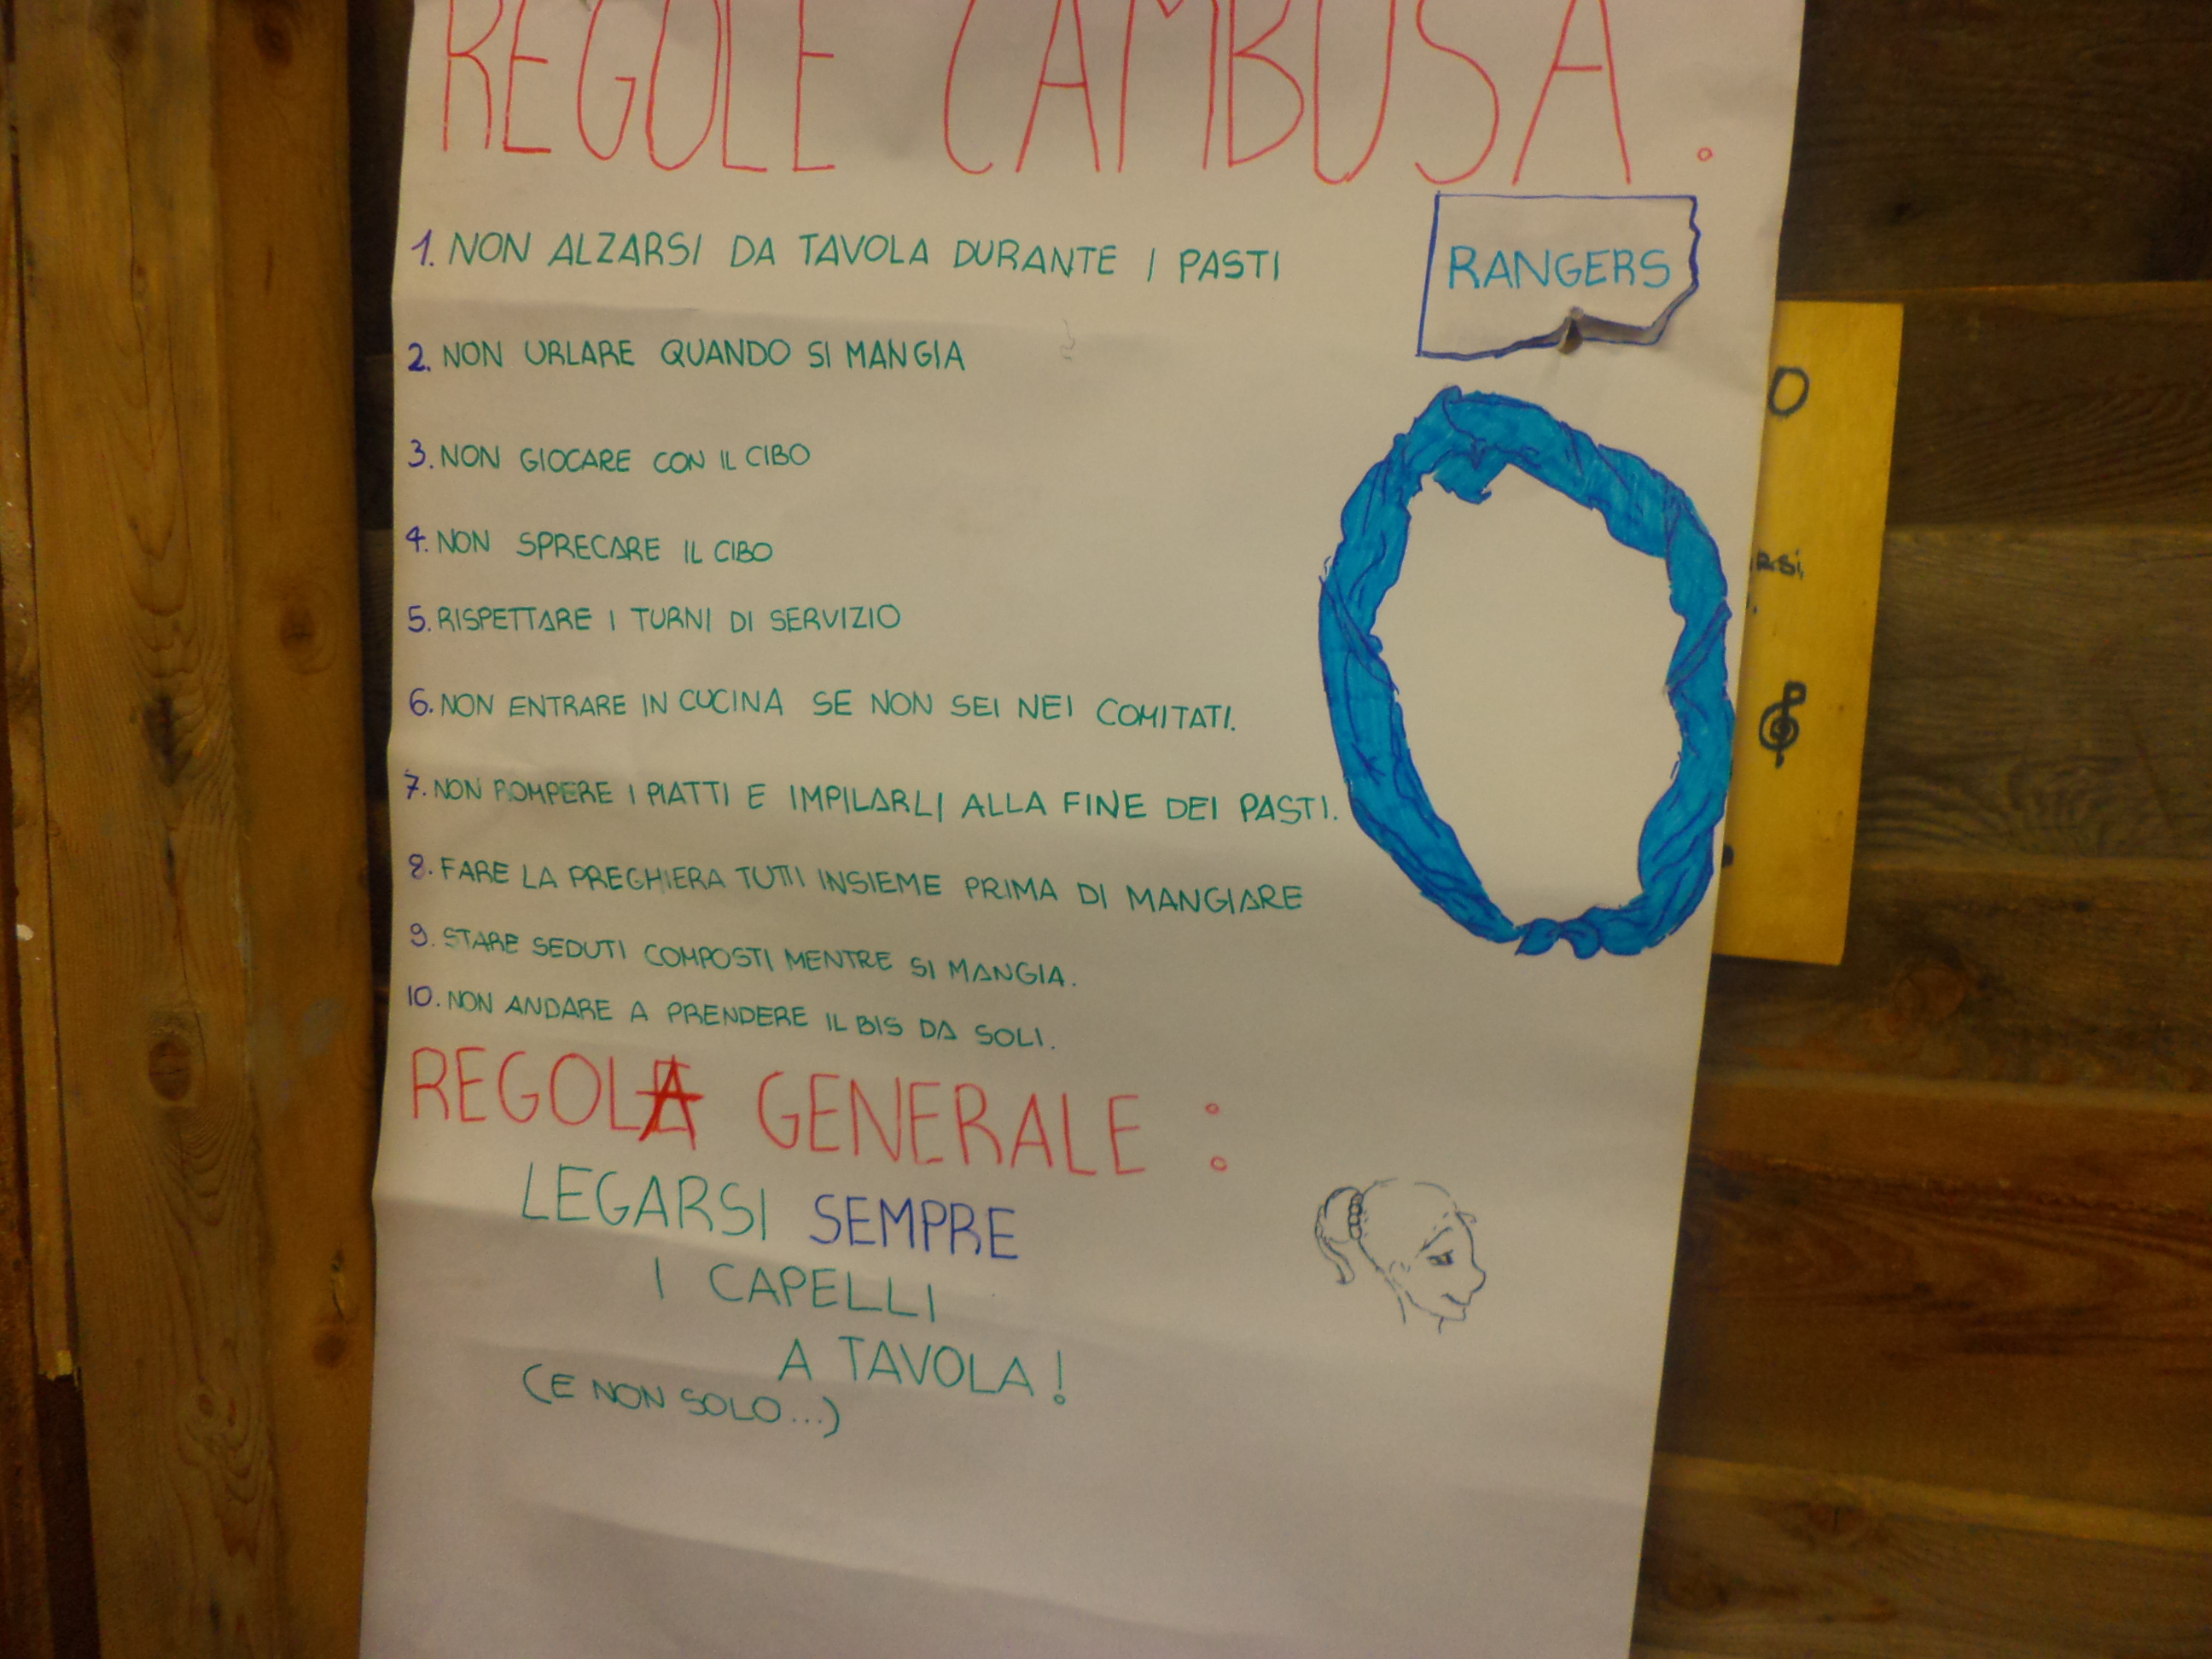 REGOLE CAMBUSA :
RANGERS
1. NON ALZARSI DA TAVOLA DURANTE I PASTI
2. NON URLARE QUANDO SI MANGIA
3. NON GIOCARE CON IL CIBO
4. NON SPRECARE IL CIBO
5. RISPETTARE I TURNI DI SERVIZIO
6. NON ENTRARE IN CUCINA SE NON SEI NEI COMITATI.
7. NON ROMPERE I PIATTI E IMPILARLI ALLA FINE DEI PASTI.
8. FARE LA PREGHIERA TUTTI INSIEME PRIMA DI MANGIARE
9. STARE SEDUTI COMPOSTI MENTRE SI MANGIA.
10. NON ANDARE A PRENDERE IL BIS DA SOLI.
REGOLA GENERALE :
LEGARSI SEMPRE
I CAPELLI
A TAVOLA!
(E NON SOLO...)